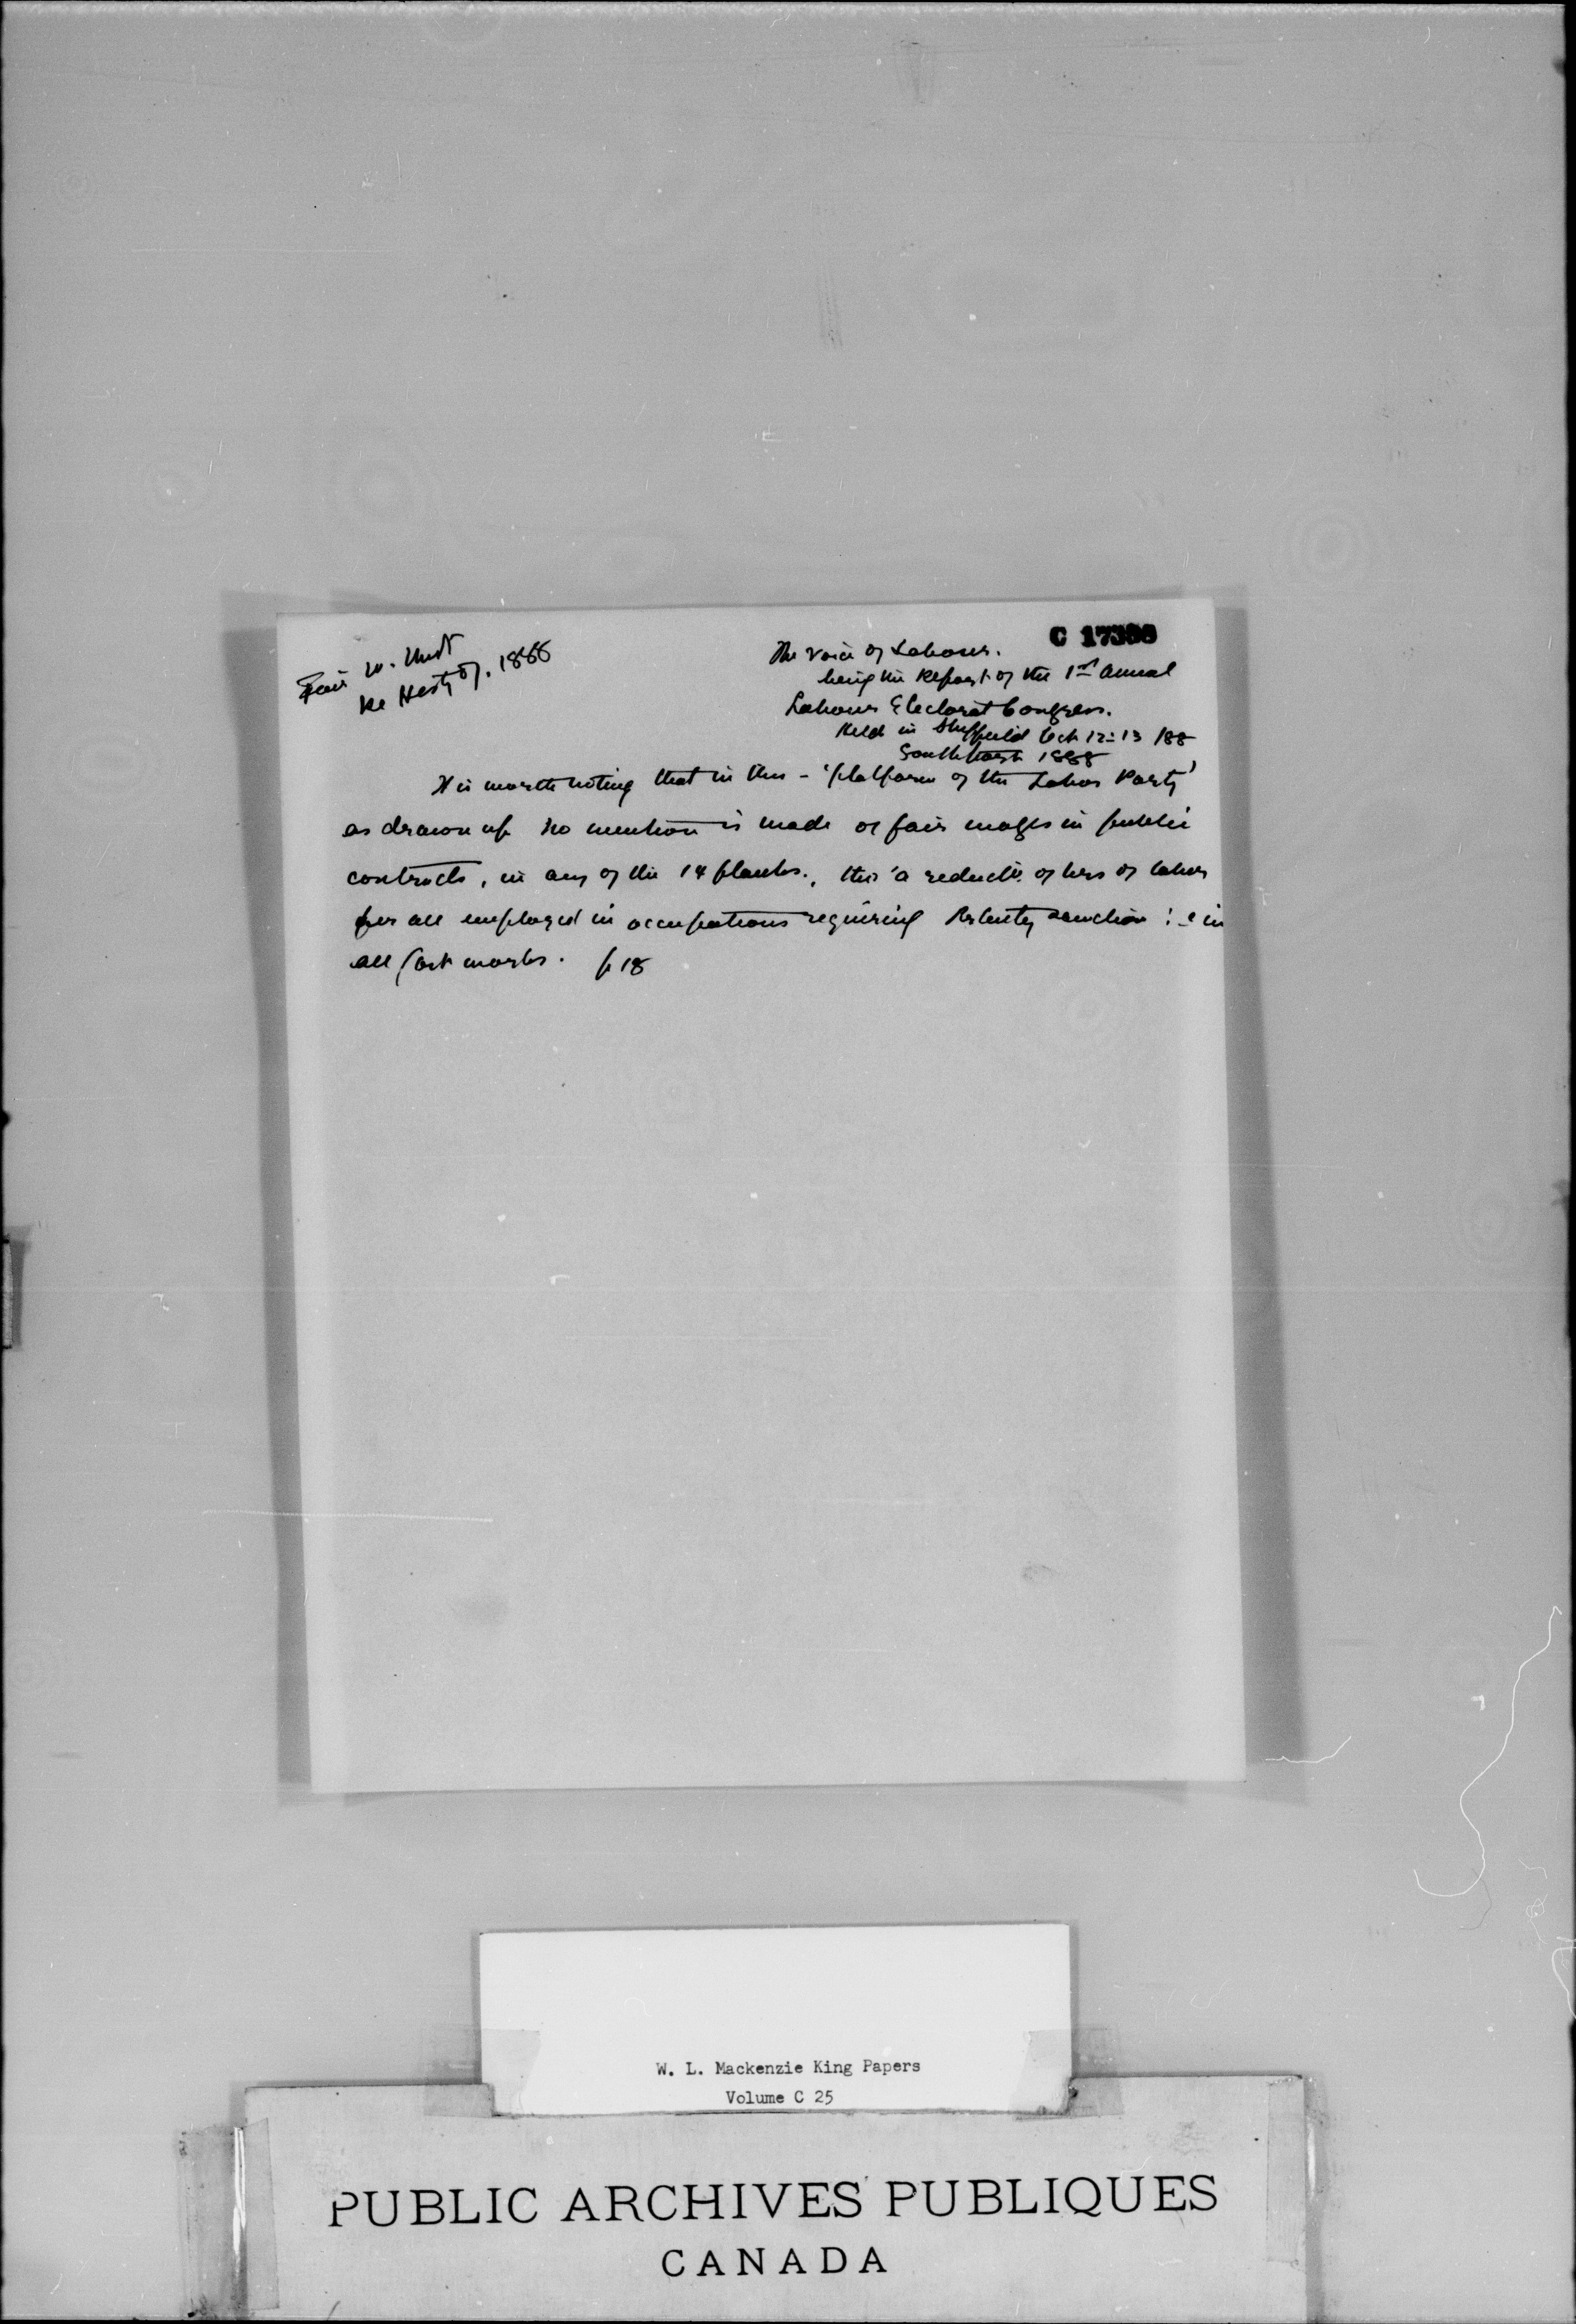 Fair w. Mvt
re Hist of. 1888
C 17
The Voice of Labour.
being the Report of the 1st Annual
Labour Electoral Congress.
Held in Sheffield Oct 12-13 188
Southport 1888
It is worth noting that in this - 'platform of the Labor Party'
as drawn up no mention is made of fair wages in public
contracts, in any of the 14 planks., tho 'a reductn. of hrs of labor
for all employed in occupations requiring sanction : & in
all Govt works. p 18
W. L. Mackenzie King Papers
Volume C 25
PUBLIC ARCHIVES PUBLIQUES
CANADA